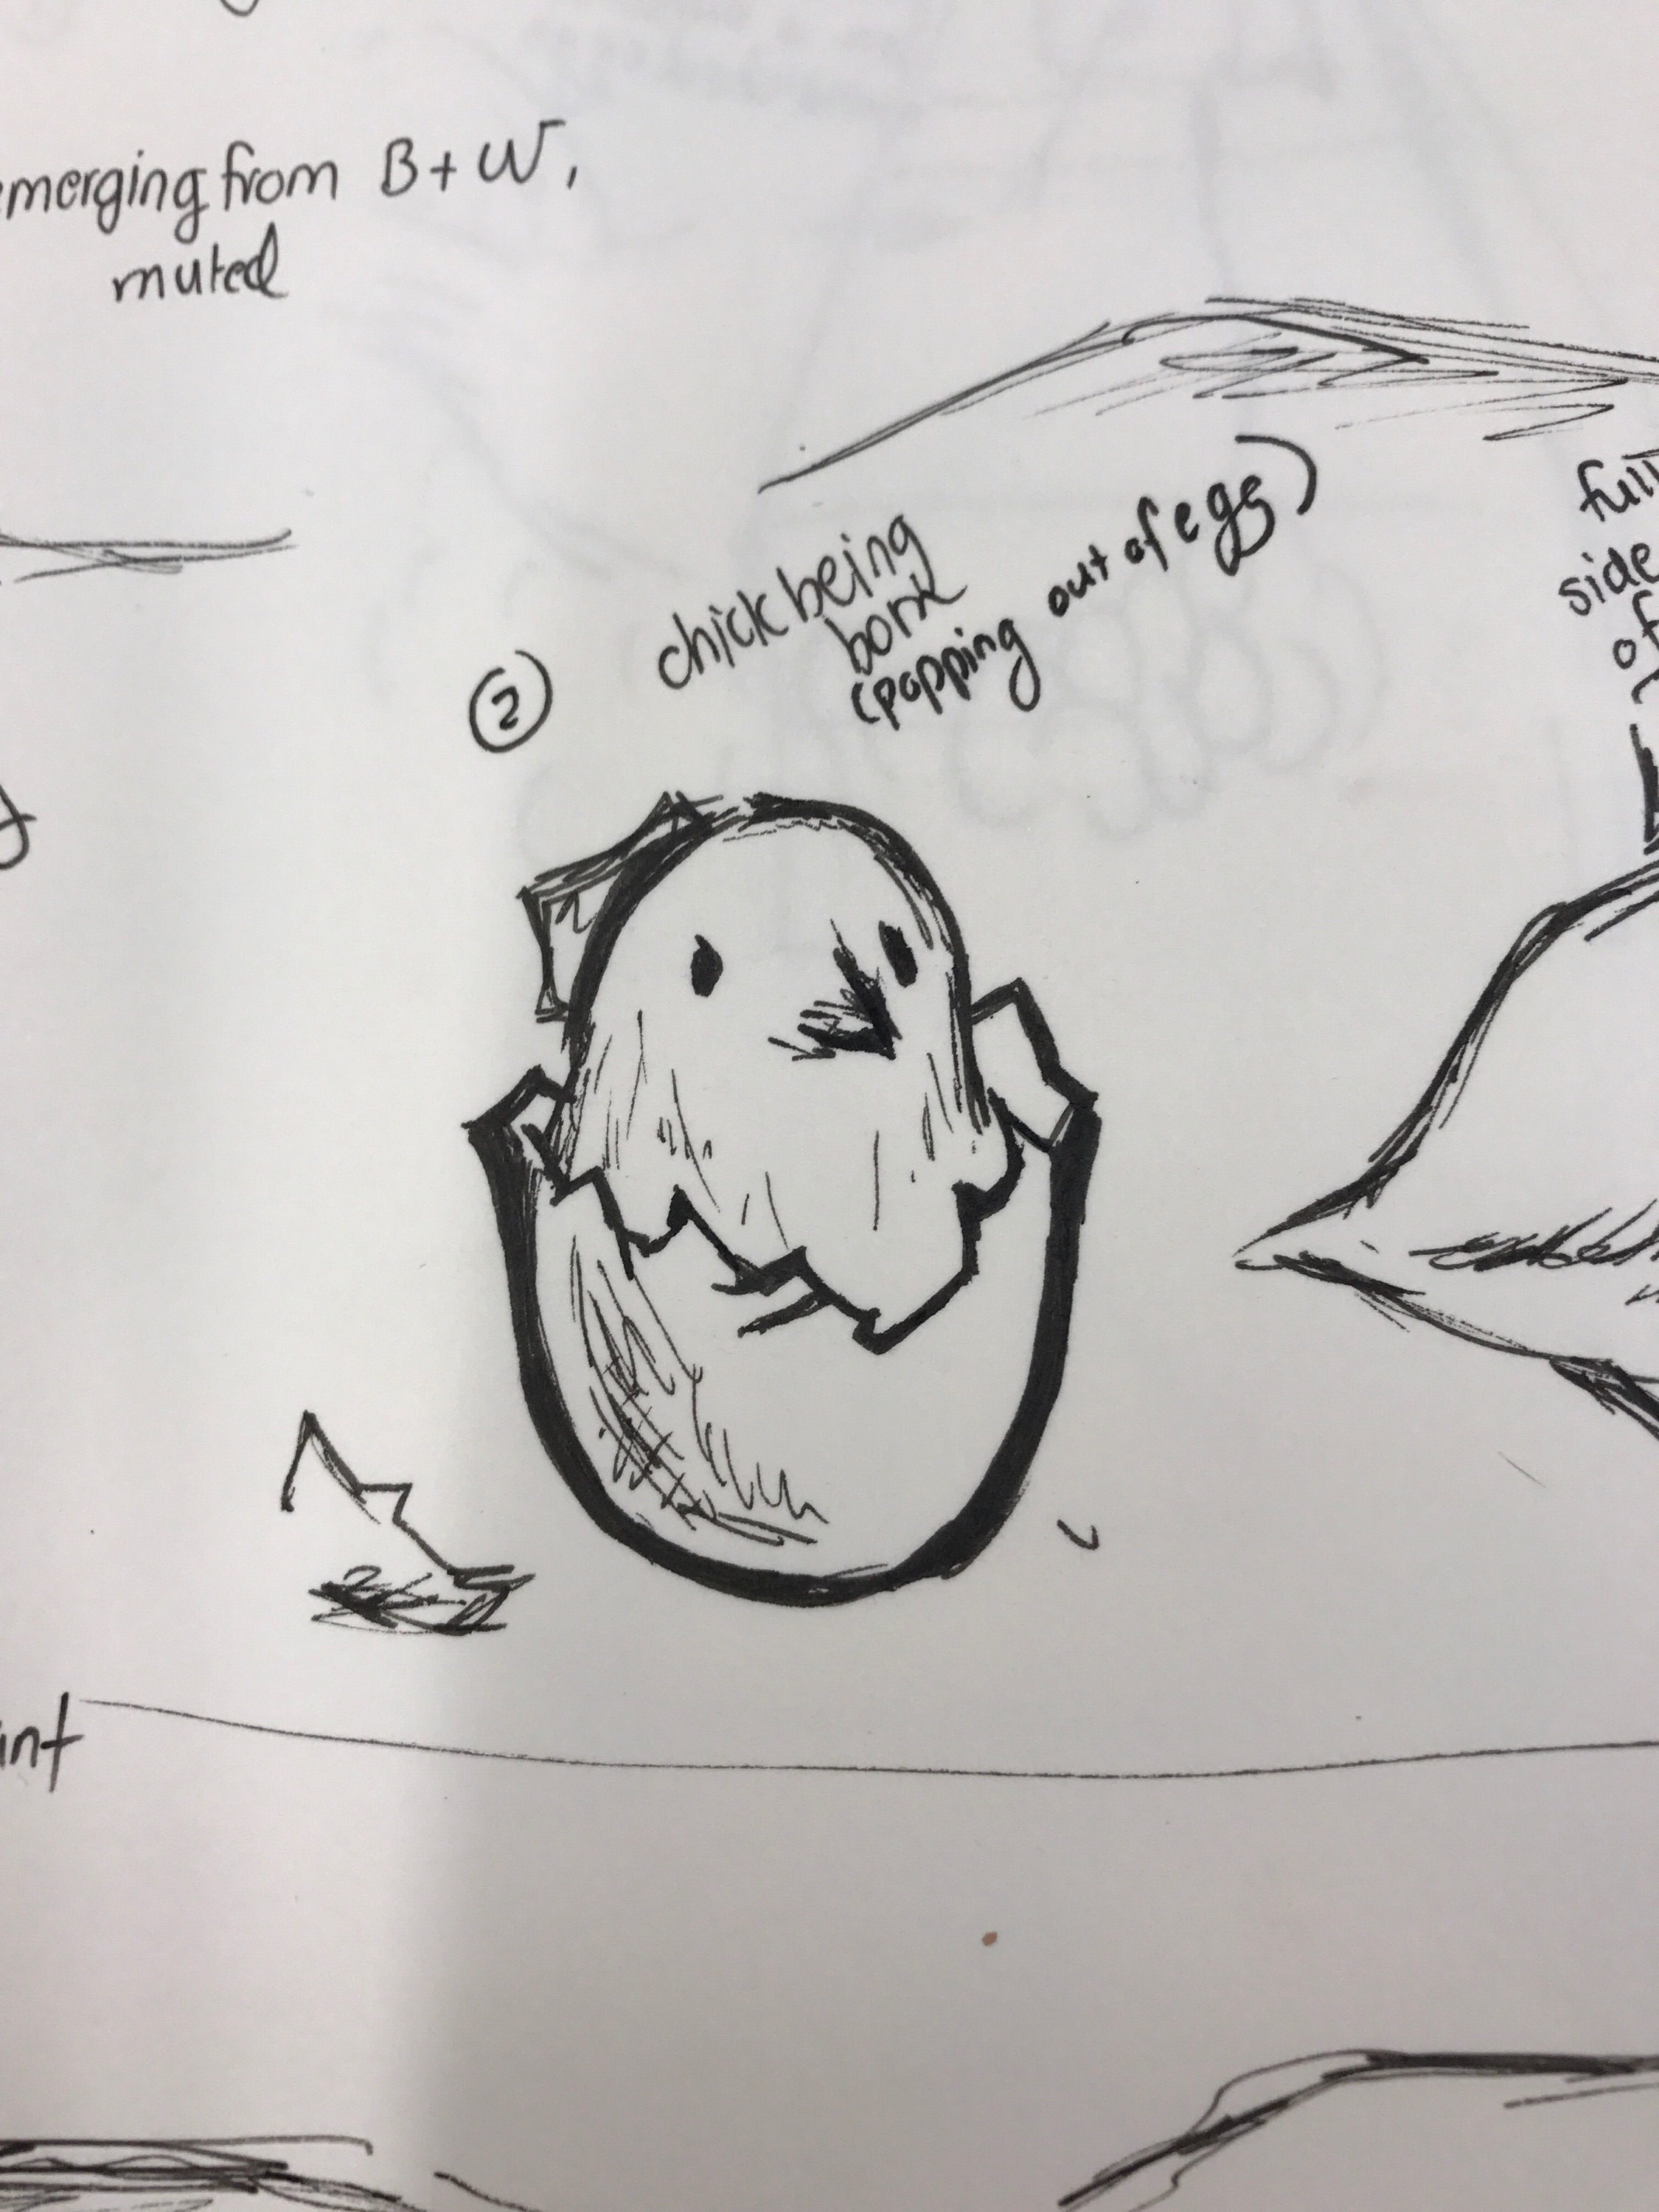 emerging from B+W,
muted
② chick being
born
(popping out of egg)
full
side
of